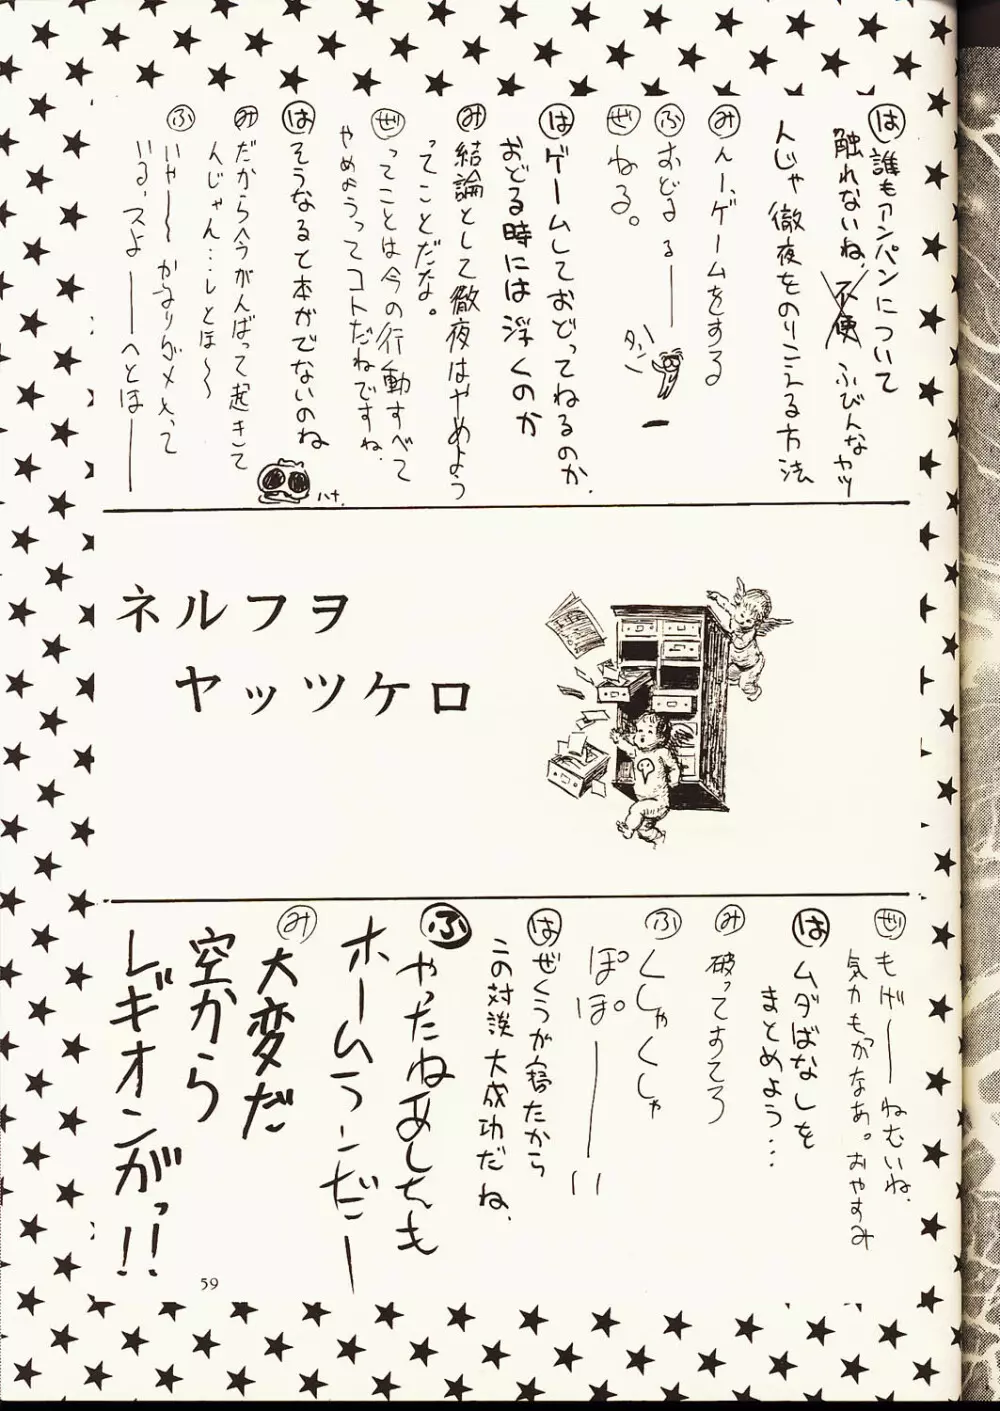 は 誰もアンパンについて
触れないね、不便 ふびんなヤツ
んじゃ徹夜をのりこえる方法
み んー、ゲームをする
ふ おどるるー
タッ
ぜ ねる。
は ゲームしておどってねるのか、
おどる時には浮くのか
み 結論として徹夜はやめよう
ってことだな。
ぜ ってことは今の行動すべて
やめようってコトだねですね、
は そうなると本がでないのね
ハナ、
み だから今がんばって起きて
んじゃん…しとほ～～
ふ いや～～かなりダメ入って
いるっスよーーへとほーー
ネルフヲ
ヤッツケロ
ぜ もげーーねむいね、
気力もつかなあ。おやすみ
は ムダばなしを
まとめよう…
み 破ってすてろ
ふ くしゃくしゃ
ぽぽーーい
は ぜくうが寝たから
この対談大成功だね、
ふ やったねあしたも
ホームランだー
み 大変だ
空から
レギオンがっ!!
59